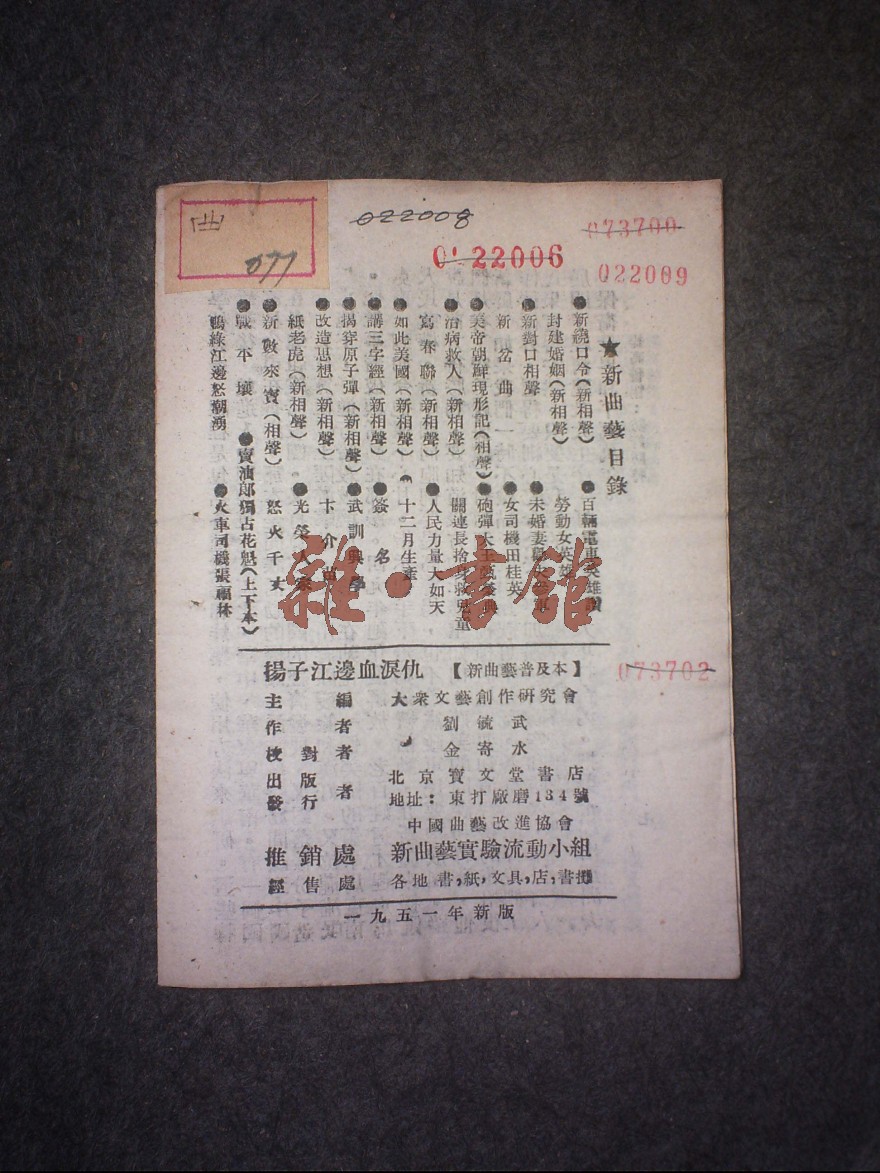 曲
077
022008
0122006
073700
022009
★新曲藝目錄
●新繞口令(新相聲)
封建婚姻(新相聲)
●新對口相聲
新岔曲
●美帝朝鮮現形記(相聲)
●治病救人(新相聲)
寫春聯(新相聲)
●如此美國(新相聲)
●講三字經(新相聲)
●揭穿原子彈(新相聲)
●改造思想(新相聲)
紙老虎(新相聲)
●新數來寶(相聲)
●戰平壤
鴨綠江邊怒潮湧
●百輛電車英雄
勞動女英雄
●未婚妻
●女司機田桂英
●砲彈大王
關連長捨身救兒童
●人民力量大如天
十二月生產
●簽名
●武訓興學
卞介
●光榮人家
怒火千丈
●賣油郎獨占花魁(上下本)
●火車司機張福林
雜·書館
073702
揚子江邊血淚仇【新曲藝普及本】
主編 大衆文藝創作研究會
作者 劉毓武
校對者 金寄水
出版發行者 北京寶文堂書店
地址:東打廠磨134號
中國曲藝改進協會
推銷處 新曲藝實驗流動小組
經售處 各地書,紙,文具,店,書攤
一九五一年新版